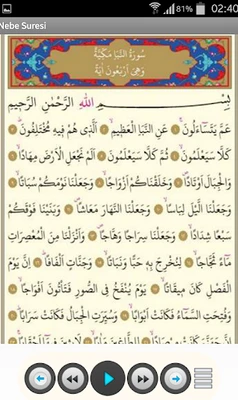 02:40
Nebe Suresi
سُورَةُ النَّبَإِ مَكِّيَّةٌ
وَهِيَ أَرْبَعُونَ آيَةً
بِسْمِ اللهِ الرَّحْمٰنِ الرَّحِيمِ
عَمَّ يَتَسَاءَلُونَ ۝ عَنِ النَّبَإِ الْعَظِيمِ ۝ الَّذِي هُمْ فِيهِ مُخْتَلِفُونَ ۝
كَلَّا سَيَعْلَمُونَ ۝ ثُمَّ كَلَّا سَيَعْلَمُونَ ۝ أَلَمْ نَجْعَلِ الْأَرْضَ مِهَادًا ۝
وَالْجِبَالَ أَوْتَادًا ۝ وَخَلَقْنَاكُمْ أَزْوَاجًا ۝ وَجَعَلْنَا نَوْمَكُمْ سُبَاتًا ۝
وَجَعَلْنَا اللَّيْلَ لِبَاسًا ۝ وَجَعَلْنَا النَّهَارَ مَعَاشًا ۝ وَبَنَيْنَا فَوْقَكُمْ
سَبْعًا شِدَادًا ۝ وَجَعَلْنَا سِرَاجًا وَهَّاجًا ۝ وَأَنْزَلْنَا مِنَ الْمُعْصِرَاتِ
مَاءً ثَجَّاجًا ۝ لِنُخْرِجَ بِهِ حَبًّا وَنَبَاتًا ۝ وَجَنَّاتٍ أَلْفَافًا ۝ إِنَّ يَوْمَ
الْفَصْلِ كَانَ مِيقَاتًا ۝ يَوْمَ يُنْفَخُ فِي الصُّورِ فَتَأْتُونَ أَفْوَاجًا ۝
وَفُتِحَتِ السَّمَاءُ فَكَانَتْ أَبْوَابًا ۝ وَسُيِّرَتِ الْجِبَالُ فَكَانَتْ سَرَابًا ۝